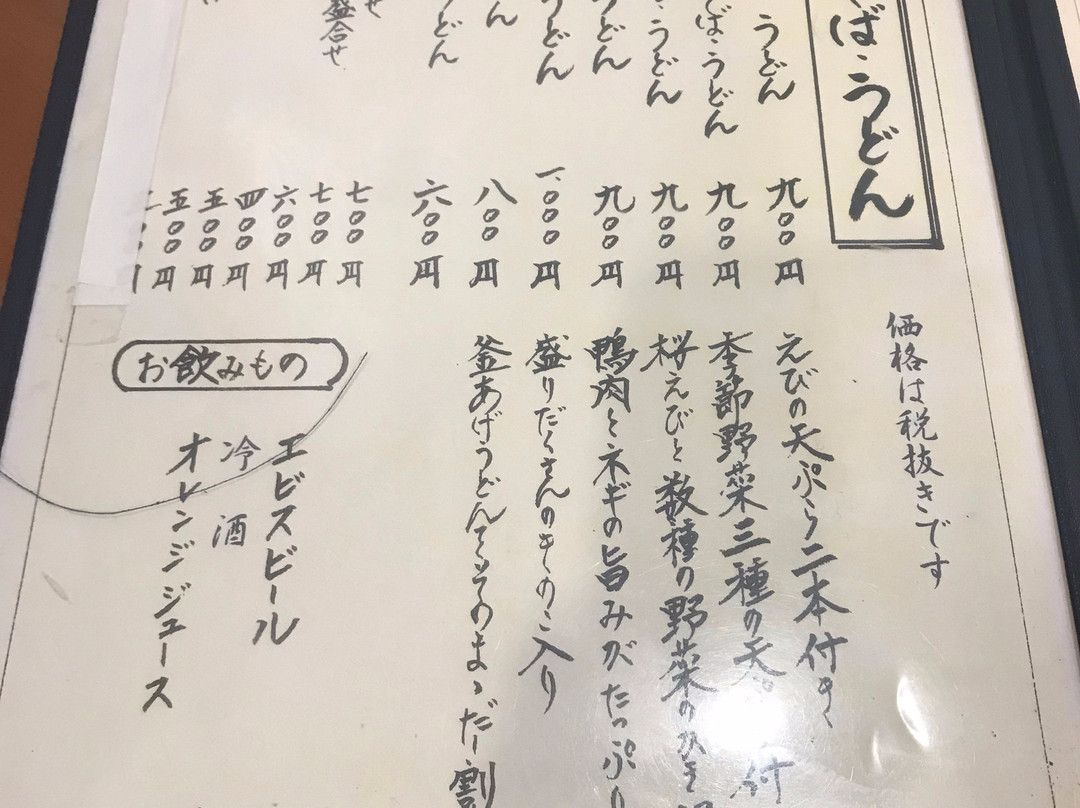 ば・うどん
価格は税抜きです
うどん
九〇〇円
えびの天ぷら二本付き
ば・うどん
九〇〇円
季節野菜三種の天
付
・うどん
九〇〇円
桜えびと数種の野菜のかき
うどん
九〇〇円
鴨肉とネギの旨みがたっぷり
うどん
一、〇〇〇円
盛りだくさんのきのこ入り
ん
八〇〇円
釜あげうどんを
そのまゝだし割
どん
六〇〇円
せ
盛合せ
七〇〇円
七〇〇円
六〇〇円
四〇〇円
五〇〇円
五〇〇円
お飲みもの
エビスビール
冷酒
オレンジジュース